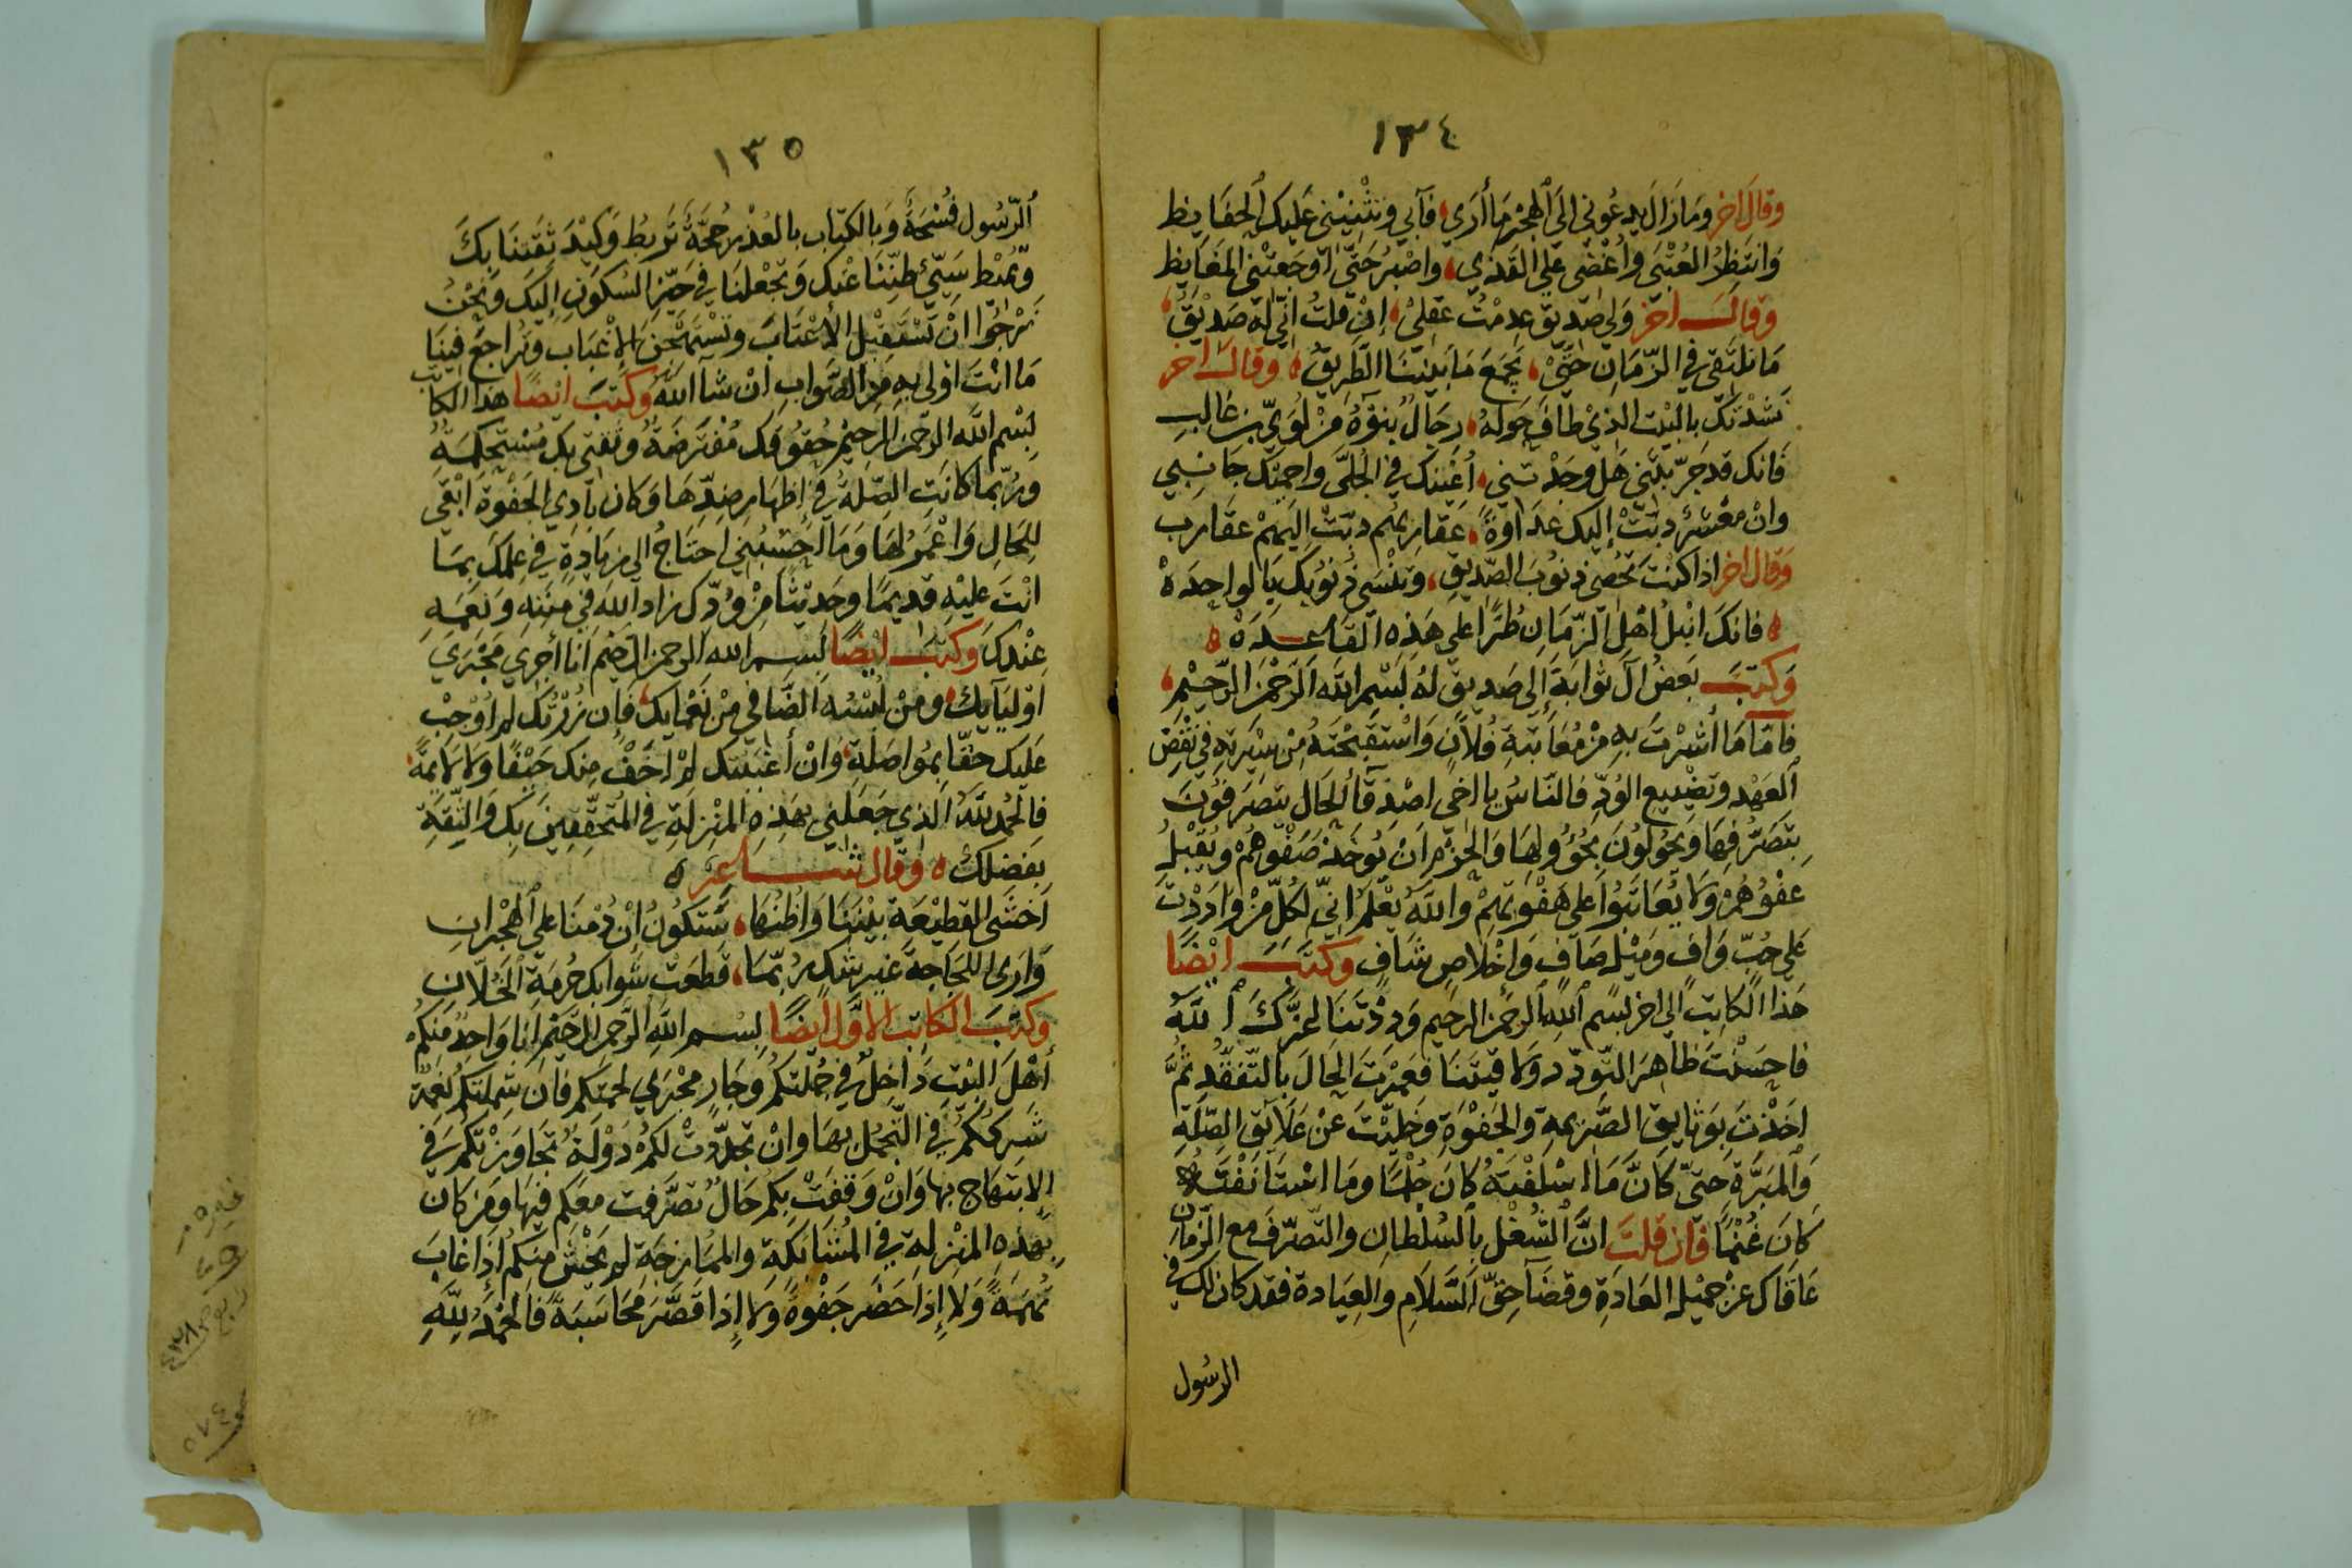 ١٣٤
وقال اخر وَمَازَالَ يَدعُونِي الَى الهَجْرِ مَا أرَي فآبي وتَثْنِيْنِي عَليكَ الحَفَايظ
وَانتَظِرُ العُتْبَى وأُغْضِى عَلي القَذي واصْبِرُ حَتَّى اوجَعتْنِي المَغَايِظ
وقالـــ اخر وَلي صَديق عدِمْتُ عَقلِيْ إن قلتُ انّي لَه صَديْقُ
مَا نلتَقي في الزّمَانِ حتَّيْ يَجمَعَ مَا بَينَنَا الطَّرِيقُ وقالــ اخر
نَشَدْتكَ بالبَيْت الذيْ طافَ حَولهُ رجَالٌ بنوْهُ مِنْ لُوَيّ بن غالبِ
فَانك قد جَرّبْتَني هَل وجَدْتَني أُغَيْنكَ في الجُلَّى واحمِيْكَ جَانبِي
وانْ مَعْشَرٌ دبَّتْ إليك عَدَاوةً عَقاربُهُم دبّتْ اليَهِمْ عقارب
وَقالَ اخر اذا كنْتَ تحْصِي ذنوُبَ الصّديقِ وتَنْسَى ذُنوْبكَ يَا لواحِدهْ
فانكَ انْبلُ اهْلِ الزّمَانِ طُرًا علي هَذِهِ القَاعــدَهْ
وَكتبَــ بَعضُ آلَ ثوابَةَ إلي صَديقٍ لهُ بَسْمِ اللهِ الرّحْمن الرّحِيْمِ
فامّا مَا أشرْتَ بهِ مِنْ مُعَاتبَةِ فُلاَنٍ وَاسْتَقْبَحْتَهُ مِنْ سِيْرَتهِ في نَقْضِ
العَهْد وتضْيِيعِ الوُدِّ فالنّاسُ يا اخي اصْدقآ الحَالِ يتصَرفوُنَ
بتَصَرُّفِهَا وَيحُولُونَ بحُؤُولهَا وَالحَزْم اَنْ يُوخَذ صَفْوهُمْ ويُقْبلُ
عفْوُهُمْ وَلا يُعَاتَبُوا عَلي هَفْوتهِمْ واللّهُ يَعْلَمُ انّي لكُلّ مَنْ وَادَدْتَ
عَلي حُبّ وَافٍ وَمَيْلٍ صَافٍ وَإخْلاصٍ شَافٍ وكتبَــ ايْضًا
هَذا الكاتِبُ الي اخر بسْم اللهِ الرحمن الرحيم وَدَدْتَنَا اعزّكَ اللهُ
فاحسَنْتَ ظاهِرَ التّودّد ولاقيتنَا فعَمَرْتَ الحَالَ بالتّفَقُّدِ ثمَّ
اخَذْتَ بوَثايق الصَّريمةِ والجَفْوَةِ وَخلّيْتَ عَنْ عَلاَئقِ الصِّلَةِ
وَالمَبَرَّةِ حَتيّ كَانَّ مَا اسْلفْتَهُ كَانَ حُلْمًا وَمَا اسْتَأنفْتَـهُ
كَانَ غُنْمًا فَان قلتَ انَّ الشُغْلَ بِالسُلْطانِ والتّصَرّفَ مع الزّمانِ
عَاقَاكَ عَنْ جَميْلِ العَادَةِ وقضَآ حقّ السَّلاَمِ والعِيَادة فقد كان لك في
الرسُول
١٣٥
الرّسُول فُسْحَةٌ وَبالكِتابِ بالعُذْرِ حُجَّةٌ تَربطُ وَكِيْدَ ثقَتنَا بكَ
وتُمِيْط سَيّئ ظنّنَا عَنك وَتجْعَلنَا في حَيّزِ السُكونِ إليكَ وَنحْنُ
نرْجُوا انْ تَسْتَقبْلِ الأعْتَابَ وتَسْتَهْجِنَ الإغْبَاب وتُراجعَ فينَا
مَا انْتَ اولي بهِ مِن الصَّوابِ انْ شآ اللهُ وكتَبَ ايْضًا هَذا الكاتب
بَسْمِ الله الرحمن الرحيْم حُقوُقكَ مُفتَرضَةٌ وثقتي بكَ مُسْتَحْكِمَةٌ
وَرُبّما كانَتِ الصِّلَةُ في إظهَارِ ضِدّهَا وَكان بَادِي الجَفْوَةِ ابْقي
لِلحَالِ وَاعْمَرُ لهَا وَمَا احْسَبُني احتَاجُ الي زيَادةٍ في عِلمكَ بمَا
انْتَ عليْهِ قديمًا وحَديثًا مِنْ ودِّكَ زاد اللهَ في منَنهِ ونعَمهِ
عِنْدكَ وَكتَبَــ ايْضًا بسْــم الله الرحمن الرّحيْم انَا أجرِي مَجْرَي
اوْليَآئكَ وَمَنْ اُلْبسُهُ الضَّافي مِنْ نَعْمَائك فَإن زُرْتُكَ لم اُوْجِبْ
عَليك حقّا بمُواصَلةٍ وَانْ أغبَبْتكَ لمْ اخَفْ مِنك حَيْفًا وَلا لآئمةً
فالحَمْد للهِ الذي جَعَلني بهَذِهِ المَنْزِلةِ في المُتحَقِّقِيْنَ بكَ وَالثِّقَةِ
بفَضلك وقال شـــاعِر
اَخشَى القطِيْعَة بيْنَنَا وَاظنُّهَا سَتكوُنُ اِنْ دُمْنَا علي الهْجْرانِ
وَارَى اللجَاجةَ غيرَ شكٍ رُبّمَا قَطعَتْ شَوابكَ حُرمَةِ الخُلاّنِ
وَكتَبَ الكاتبُ الاوّلُ ايضًا بسْـم اللهِ الرّحمن الرّحيْم انا وَاحدٌ منكُم
أهْلَ البيْتِ دَاخِلٌ في جُملَتكمْ وَجَارٍ مجْرَي لحمَتكُم فَان شمِلَتكم نعْمَةٌ
شَرِكتُكُمْ في التّجَمُّلِ بهَا وانْ تجدّدتْ لكُمْ دَوْلَةٌ تجَاوَزْتكُمْ في
الإبتهَاج بها وَانْ وَقفَتْ بِكمْ حَالٌ تصَرَّفت معَكم فيهَا ومَن كان
بهذِهِ المَنْزِلةِ في المُشَابَكةِ والممَازجَةِ لم يَخْشَ منكُم اِذا غابَ
تُهمَةً وَلا إذا حَضَر جَفْوةً وَلا إذا قَصَّرَ مُحَاسَبَةً فَالحْمْدُ لِلّهِ